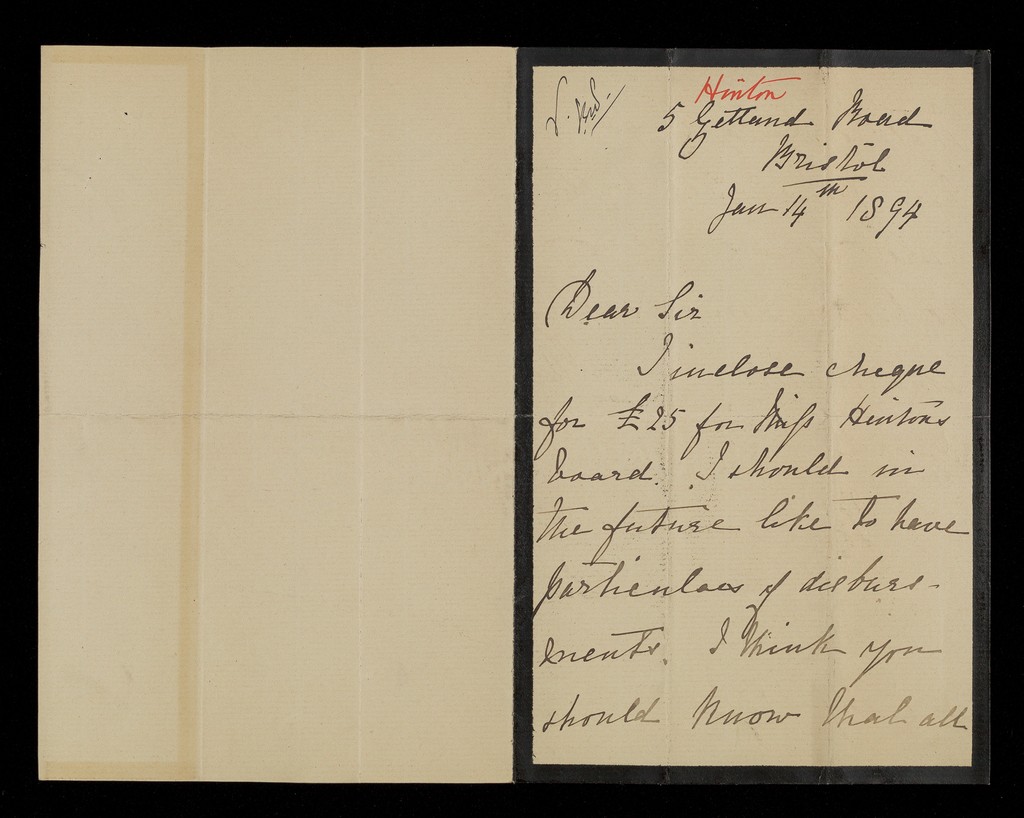 Hinton
5 Zetland Road
Bristol
Jan 14th 1894
Dear Sir
I inclose cheque
for £25 for Miss Hintons
board. I should in
the future like to have
particulars of disburse-
ments. I think you
should know that all